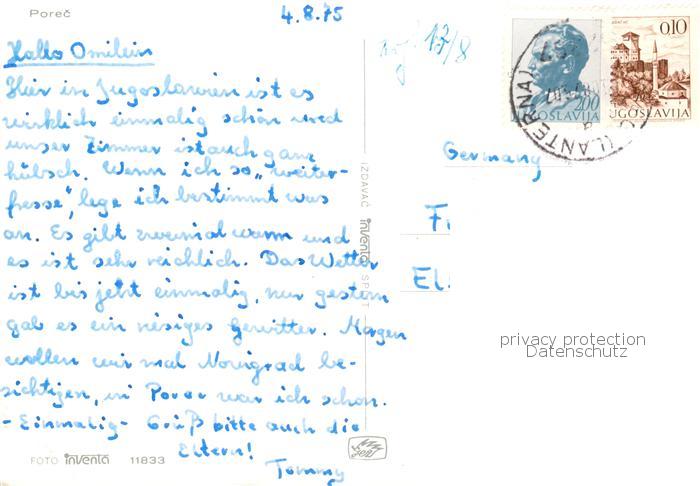 Poreč
4.8.75
Hallo Omilein
Hier in Jugoslawien ist es
wirklich einmalig schön und
unser Zimmer ist auch ganz
hübsch. Wenn ich so „weiter-
fresse", lege ich bestimmt was
an. Es gibt zweimal warm und
es ist sehr reichlich. Das Wetter
ist bis jetzt einmalig, nur gestern
gab es ein riesiges Gewitter. Morgen
wollen wir mal Novigrad be-
sichtigen, in Porec war ich schon.
- Einmalig - Grüß bitte auch die
Eltern!
Tommy
FOTO inventa 11833
IZDAVAČ inventa SPLIT
13/8
2.00
JUGOSLAVIJA
0.10
JUGOSLAVIJA
(LANTERNA)
Germany
F
El
privacy protection
Datenschutz